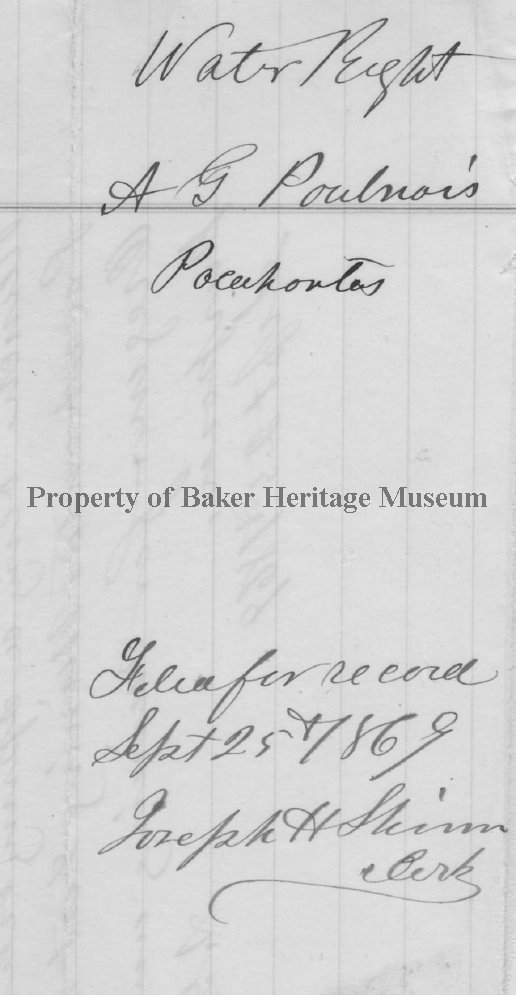 Water Right
A G Poulnois
Pocahontas
Property of Baker Heritage Museum
Filed for record
Sept 25th 1869
Joseph H Shinn
Clerk